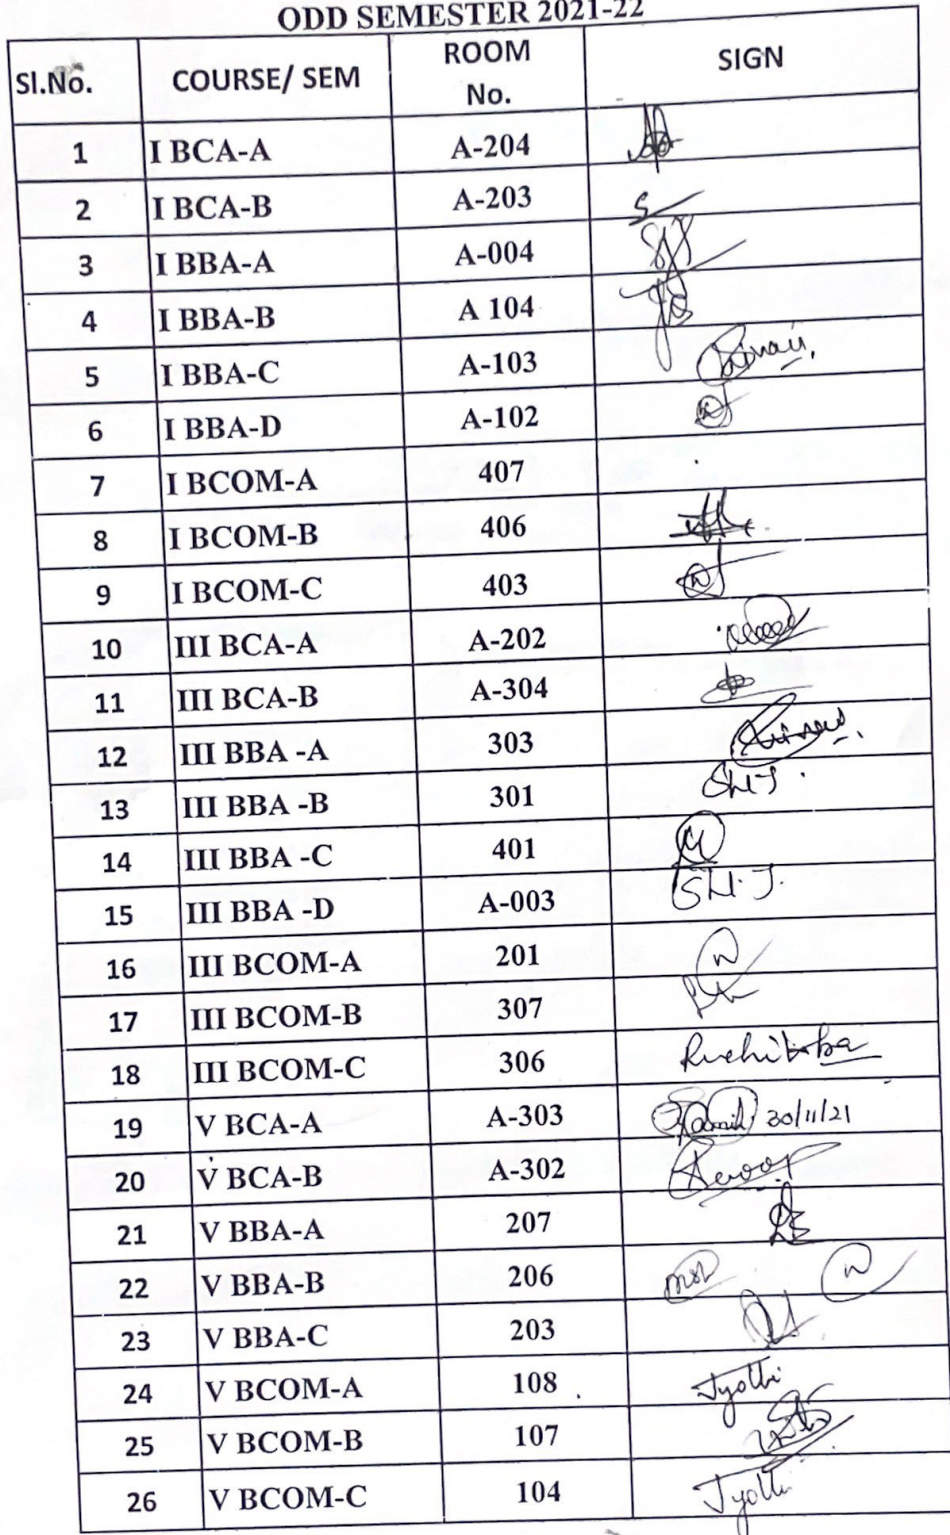 ODD SEMESTER 2021-22
Sl.No. COURSE/ SEM ROOM No. SIGN
1 I BCA-A A-204
2 I BCA-B A-203
3 I BBA-A A-004
4 I BBA-B A 104
5 I BBA-C A-103
6 I BBA-D A-102
7 I BCOM-A 407
8 I BCOM-B 406
9 I BCOM-C 403
10 III BCA-A A-202
11 III BCA-B A-304
12 III BBA -A 303
13 III BBA -B 301
14 III BBA -C 401
15 III BBA -D A-003
16 III BCOM-A 201
17 III BCOM-B 307
18 III BCOM-C 306
19 V BCA-A A-303 30/11/21
20 V BCA-B A-302
21 V BBA-A 207
22 V BBA-B 206
23 V BBA-C 203
24 V BCOM-A 108 Jyothi
25 V BCOM-B 107
26 V BCOM-C 104 Jyothi